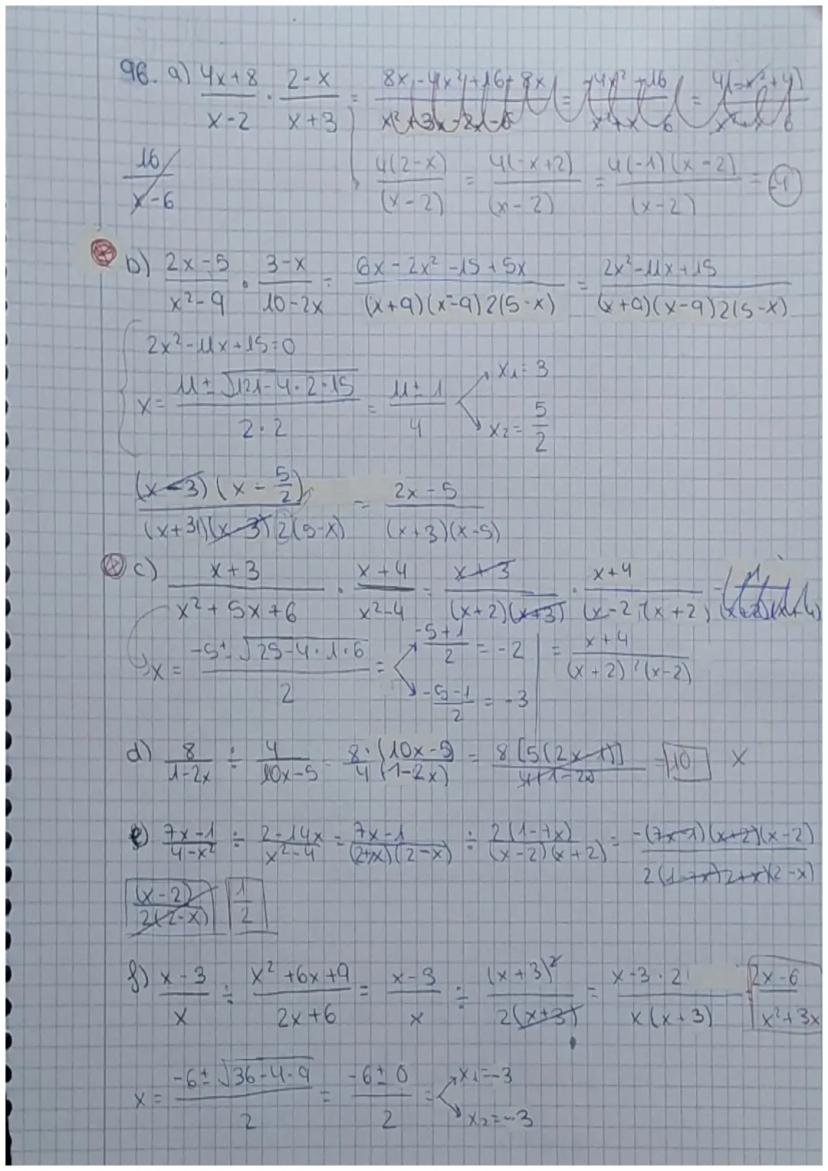 96. a) (4x+8)/(x-2) · (2-x)/(x+3) = (8x-4x²+16-8x)/(x²+3x-2x-6) = (-4x²+16)/(x²+x-6) = 4(-x²+4)/
16/(x-6) 4(2-x)/(x-2) = 4(-x+2)/(x-2) = 4(-1)(x-2)/(x-2) = -4
b) (2x-5)/(x²-9) · (3-x)/(10-2x) = (6x-2x²-15+5x)/((x+9)(x-9)2(5-x)) = (2x²-11x+15)/((x+9)(x-9)2(5-x))
2x²-11x+15=0
x = (11±√(121-4·2·15))/(2·2) = (11±1)/4 x₁=3 x₂=5/2
(x-3)(x-5/2)/((x+3)(x-3)2(5-x)) = (2x-5)/((x+3)(x-5))
c) (x+3)/(x²+5x+6) · (x+4)/(x²-4) = (x+3)/((x+2)(x+3)) · (x+4)/((x-2)(x+2)) =
x = (-5±√(25-4·1·6))/2 = (-5+1)/2 = -2 (-5-1)/2 = -3 = (x+4)/((x+2)²(x-2))
d) 8/(1-2x) ÷ 4/(10x-5) = 8·(10x-5)/(4(1-2x)) = 8[5(2x-1)]/(4(1-2x)) = 10 x
e) (7x-1)/(4-x²) ÷ (2-14x)/(x²-4) = (7x-1)/((2+x)(2-x)) ÷ 2(1-7x)/((x-2)(x+2)) = -(7x-1)(x+2)(x-2)/(2(1-7x)(2+x)(2-x))
(x-2)/(2(2-x)) 1/2
f) (x-3)/x ÷ (x²+6x+9)/(2x+6) = (x-3)/x ÷ (x+3)²/(2(x+3)) = (x-3·2)/(x(x+3)) (2x-6)/(x²+3x)
x = (-6±√(36-4·9))/2 = (-6±0)/2 = x₁=-3 x₂=-3